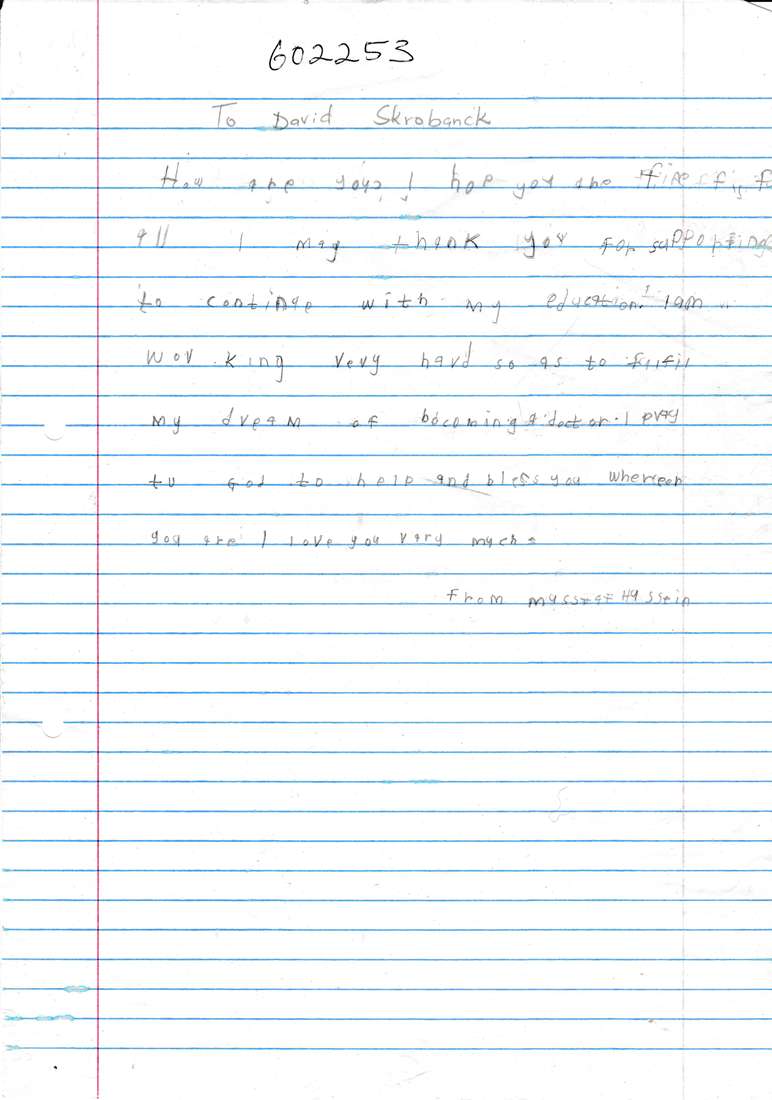 602253
To David Skrobanck
How are you? I hope you are fine
all I may thank you for supporting
to continue with my education. I am
wor.king very hard so as to fulfil
my dream of bocoming a doctor. I pray
to God to help and bless you whereer
you are I love you vary much.
From Mussraf Hussein